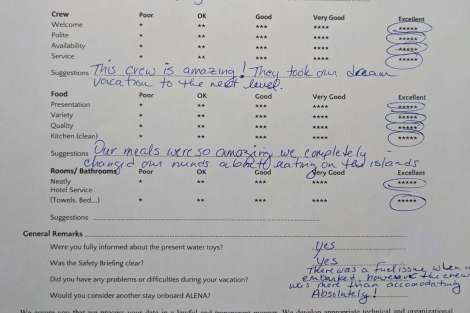 Crew Poor OK Good Very Good Excellent
Welcome * ** *** **** *****
Polite * ** *** **** *****
Availability * ** *** **** *****
Service * ** *** **** *****
Suggestions This crew is amazing! They took our dream
vacation to the next level.
Food Poor OK Good Very Good Excellent
Presentation * ** *** **** *****
Variety * ** *** **** *****
Quality * ** *** **** *****
Kitchen (clean) * ** *** **** *****
Suggestions Our meals were so amazing we completely
changed our minds about eating on the islands
Rooms/ Bathrooms Poor OK Good Very Good Excellent
Neatly * ** *** **** *****
Hotel Service
(Towels. Bed...) * ** *** **** *****
Suggestions
General Remarks
Were you fully informed about the present water toys? yes
Was the Safety Briefing clear? yes
There was a fuel issue when we
Did you have any problems or difficulties during your vacation? embarked, however the crew
was more than accomodating
Would you consider another stay onboard ALENA? Absolutely!